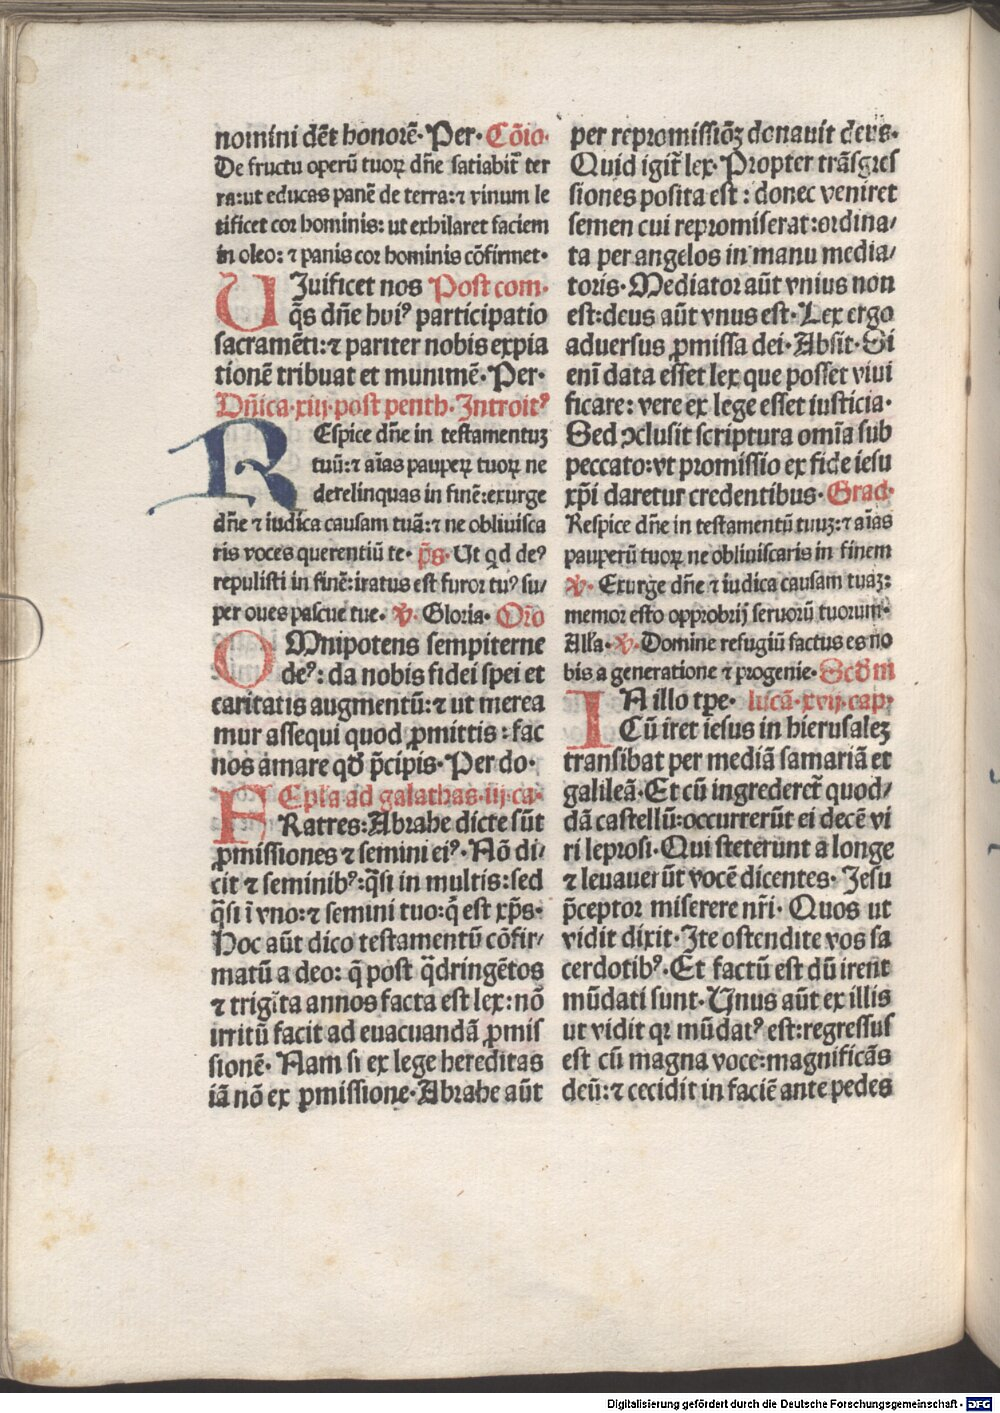 nomini dēt honorē· Per· Cōio·
De fructu operū tuoꝝ dn̄e satiabit̄ ter
ra:ut educas panē de terra:⁊ vinum le
tificet cor hominis: ut exhilaret faciem
in oleo: ⁊ panis cor hominis cōfirmet·
UJuificet nos Post com·
q̄s dn̄e huiꝰ participatio
sacramēti:⁊ pariter nobis expia
tionē tribuat et munimē· Per·
Dn̄ica·xiij·post penth·Introitꝰ
REspice dn̄e in testamentuꝫ
tuū:⁊ aīas pauperꝝ tuoꝝ ne
derelinquas in finē:exurge
dn̄e ⁊ iudica causam tuā:⁊ ne obliuisca
ris voces querentiū te· p̄s· Ut qd deꝰ
repulisti in finē:iratus est furor tuꝰ su/
per oues pascue tue· ℣· Gloria· Orō
OMnipotens sempiterne
deꝰ: da nobis fidei spei et
caritatis augmentū:⁊ ut merea
mur assequi quod ꝓmittis: fac
nos amare qđ p̄cipis· Per do·
Epl̄a ad galathas·iij·ca·
FRatres:Abrahe dicte sūt
ꝓmissiones ⁊ semini eiꝰ· Nō di/
cit ⁊ seminibꝰ:q̄si in multis:sed
q̄si ī vno:⁊ semini tuo:q̄ est xp̄s·
Hoc aūt dico testamentū cōfir/
matū a deo: q̄ post q̄dringētos
⁊ trigīta annos facta est lex:nō
irritū facit ad euacuandā ꝓmis
sionē· Nam si ex lege hereditas
iā nō ex ꝓmissione·Abrahe aūt
per repromissiōꝫ donauit deus·
Quid igit̄ lex· Propter trāsgres
siones posita est: donec veniret
semen cui repromiserat:ordina/
ta per angelos in manu media/
toris· Mediator aūt vnius non
est:deus aūt vnus est· Lex ergo
aduersus ꝓmissa dei· Absit· Si
enī data esset lex que posset viui
ficare: vere ex lege esset iusticia·
Sed ↄclusit scriptura omīa sub
peccato:vt promissio ex fide iesu
xp̄i daretur credentibus· Grad·
Respice dn̄e in testamentū tuuꝫ:⁊ aīas
pauperū tuoꝝ ne obliuiscaris in finem
℣· Exurge dn̄e ⁊ iudica causam tuaꝫ:
memor esto opprobrij seruorū tuorum·
Alla· ℣· Domine refugiū factus es no
bis a generatione ⁊ progenie· Scđm
IN illo tpe· lucā·xvij·cap·
Cū iret iesus in hierusaleꝫ
transibat per mediā samariā et
galileā· Et cū ingrederet̄ quod/
dā castellū:occurrerūt ei decē vi
ri leprosi· Qui steterunt a longe
⁊ leuauerūt vocē dicentes· Jesu
p̄ceptor miserere nr̄i· Quos ut
vidit dixit· Ite ostendite vos sa
cerdotibꝰ· Et factū est dū irent
mūdati sunt· Unus aūt ex illis
ut vidit qꝛ mūdatꝰ est:regressus
est cū magna voce:magnificās
deū:⁊ cecidit in faciē ante pedes
Digitalisierung gefördert durch die Deutsche Forschungsgemeinschaft - DFG